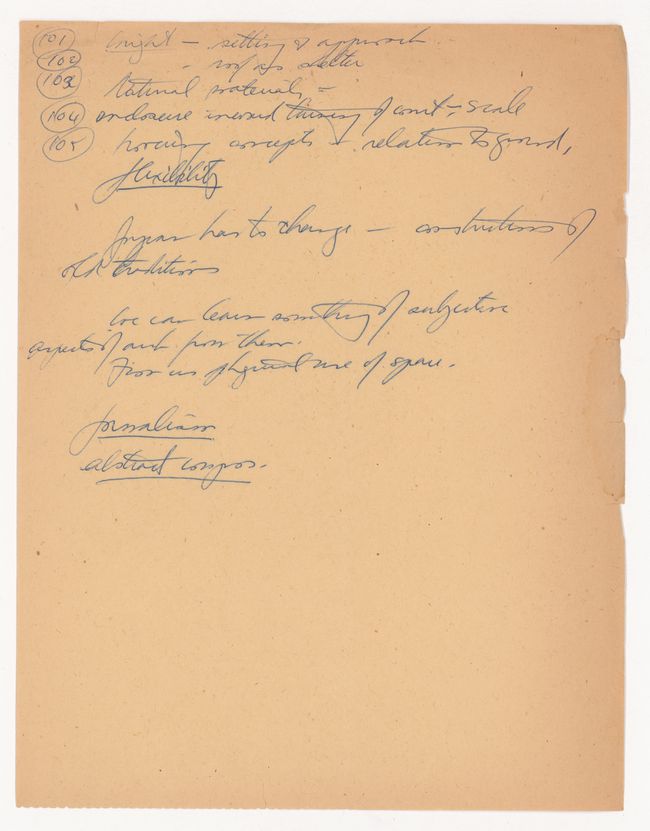 101 Wright – setting & approach
102 - roof as shelter
103 Natural materials –
104 enclosure inward turning of court – scale
105 housing concepts – relation to ground,
flexibility
Japan has to change – constrictions of
old traditions
We can learn something of subjective
aspects of arch from them.
Fine as physical use of space.
formalism
abstract compos.